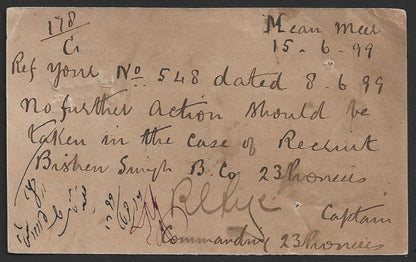 178
C1
Mean Meer
15-6-99
Ref your No 548 dated 8-6-99
No further action should be
taken in the case of Recruit
Bishen Singh B. Co 23 Pioneers
Captain
Commanding 23 Pioneers